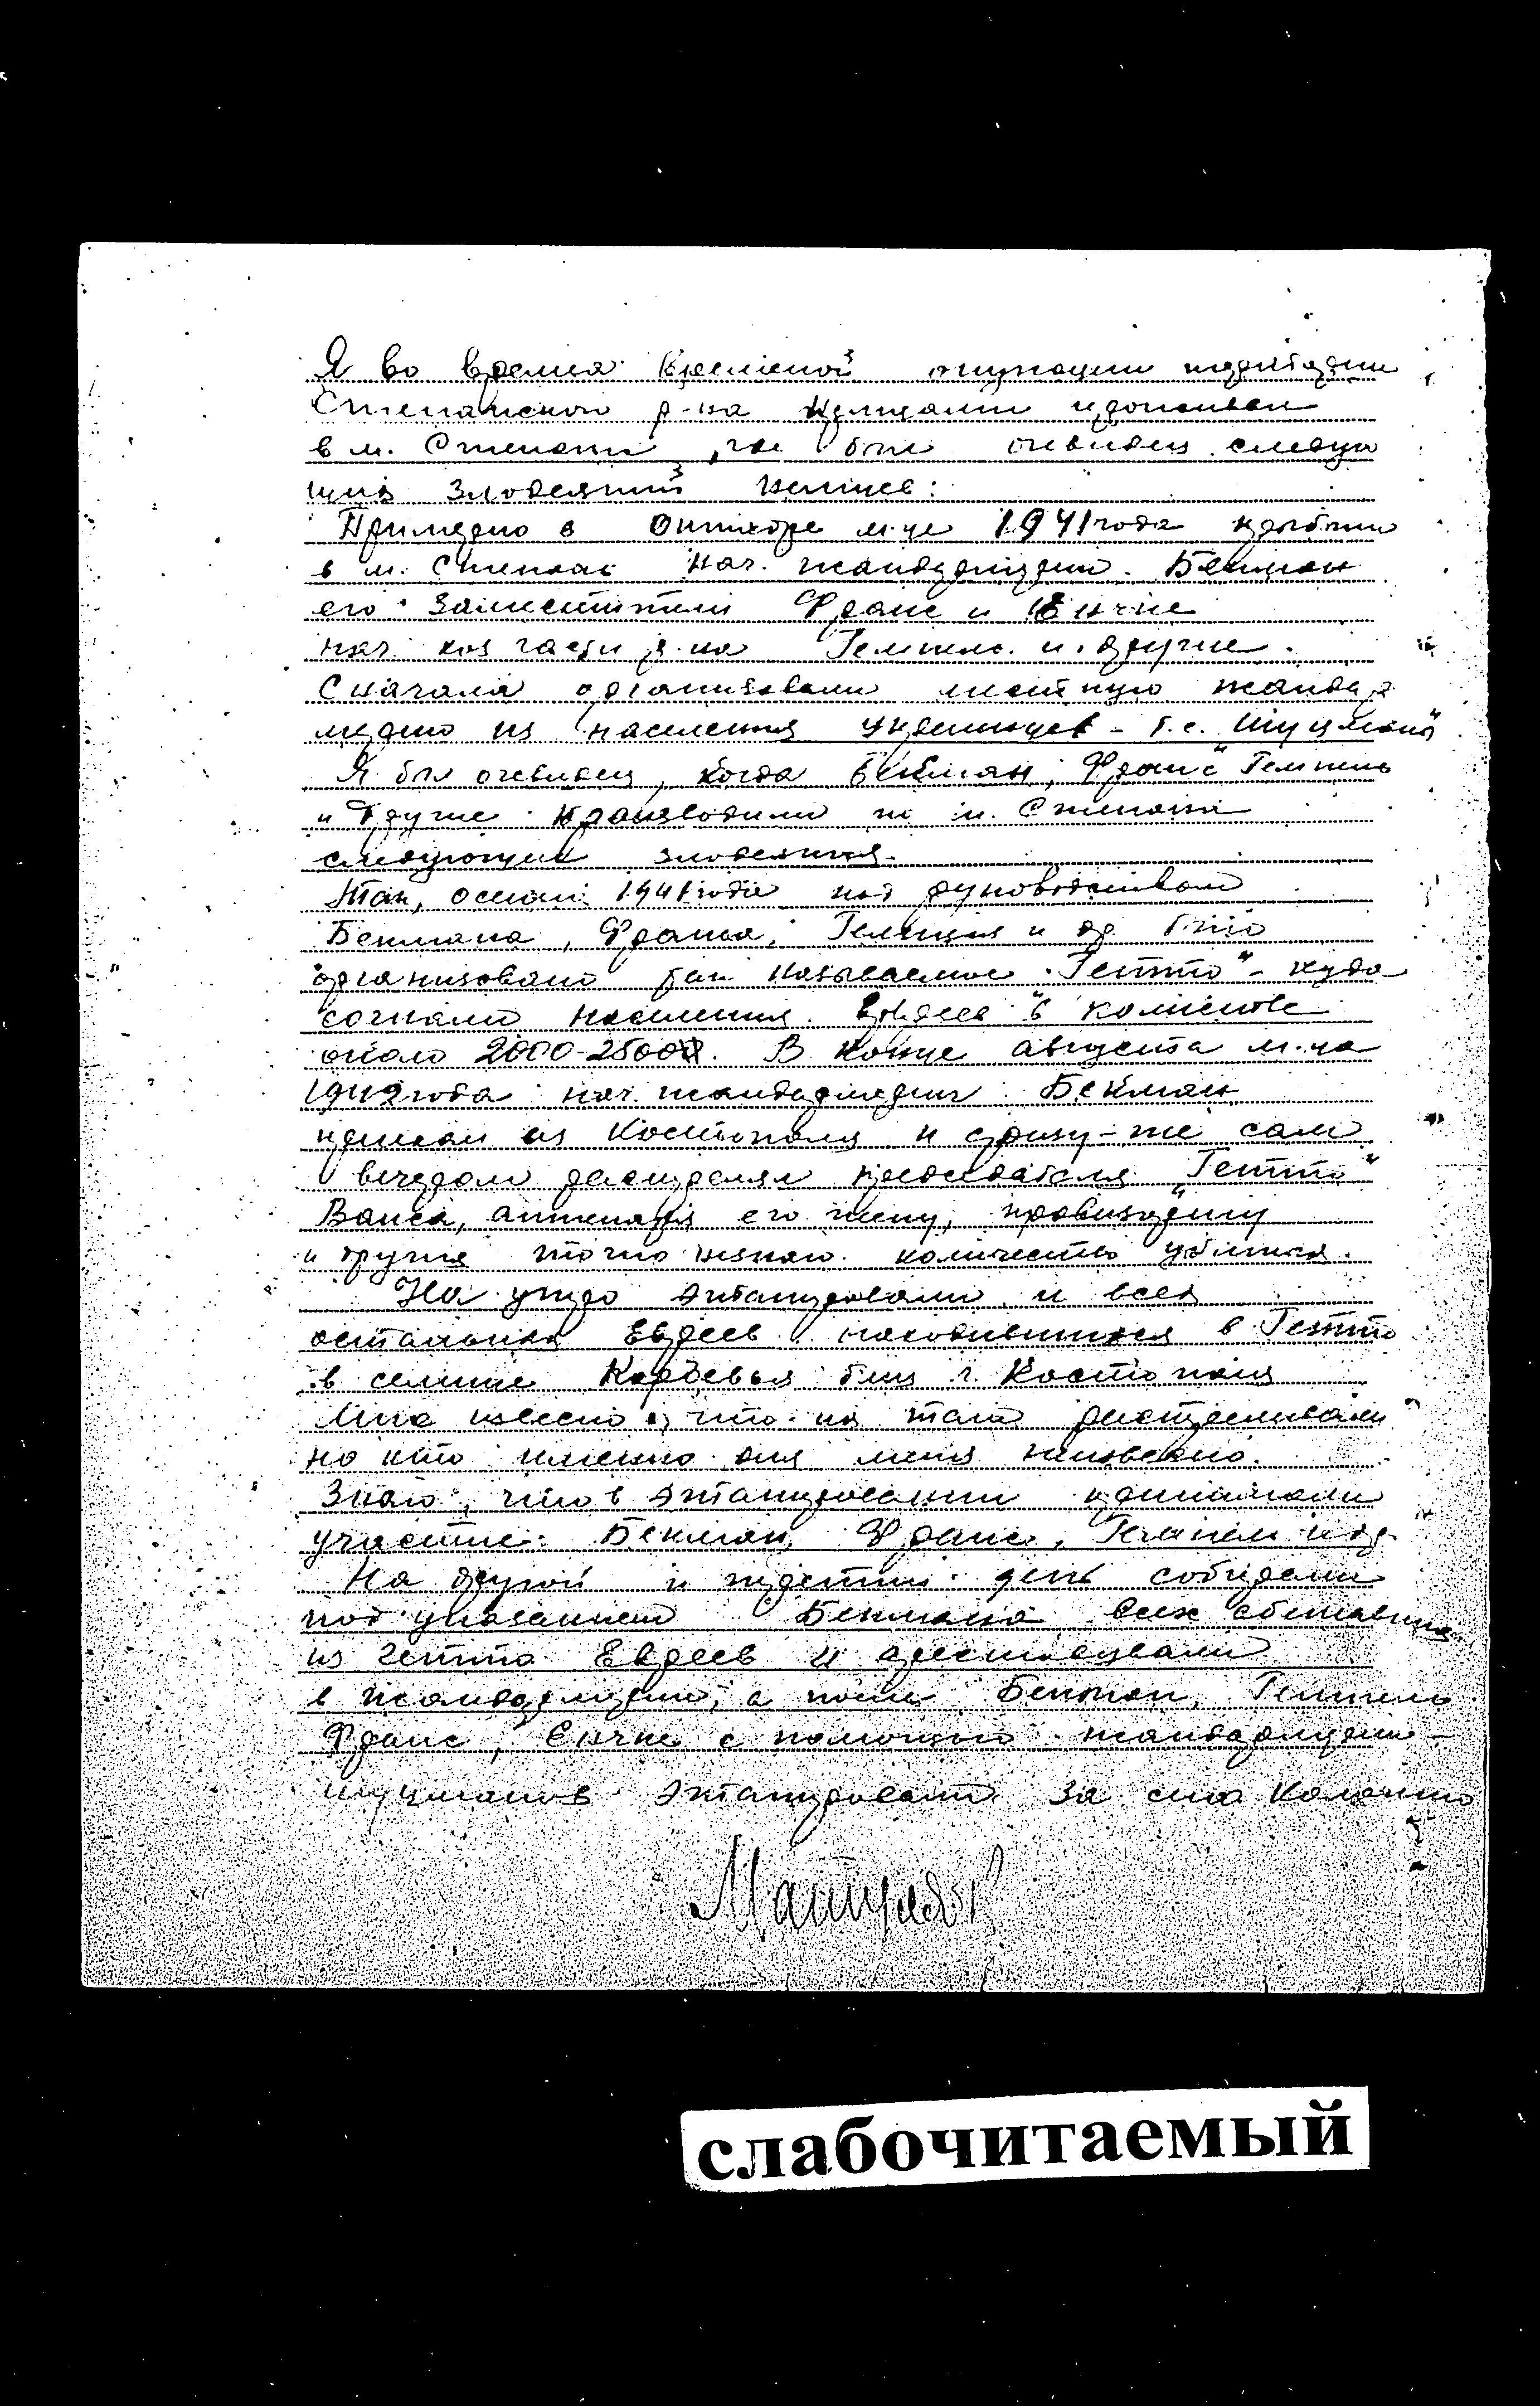 Я во время временой окупации территории
Степанского р-на немцами проживал
в м. Степани, где был очевидец следую
щих злодеяний немцев:
Примерно в Октябре м-це 1941 года прибыли
в м. Степань нач. жандармерии Бекман
его заместители Франс и Енчке
нач. хоз части р-на Гемпель и другие.
Сначала организовали местную жандар
мерию из населения украинцев - т.е. Шуцманов"
Я был очевидец, когда Бекман, Франс" Гемпель
и другие производили по м. Степани
следующие злодеяния.
Так, осенью 1941 года под руководством
Бекмана, Франса, Гемпеля и др было
организовано так называемое "Гетто" - куда
согнали населения Евреев в количестве
около 2000-2500. В конце августа м-ца
1942 года нач. жандармерии Бекман
приехал из Костополя и сразу-же сам
вечером расстрелял председателя "Гетто"
Ванса, аптекаря его жену, провизоршу
и других точно незнаю количество убитых.
На утро этапировали и всех
остальных Евреев находившихся в Гетто
в селение Карчевья близ г. Костополя
Мне известно, что их там расстреливали
но кто именно для меня неизвестно.
Знаю, что в этапировании принимали
участие: Бекман, Франс, Гемпель и др.
На другой и третий день собирали
под указанием Бекмана всех сбежавших
из Гетто Евреев и арестовували
в жандармерию, а после Бекман, Гемпель
Франс, Енчке с помощью жандармерии -
шуцманов этапировали за село